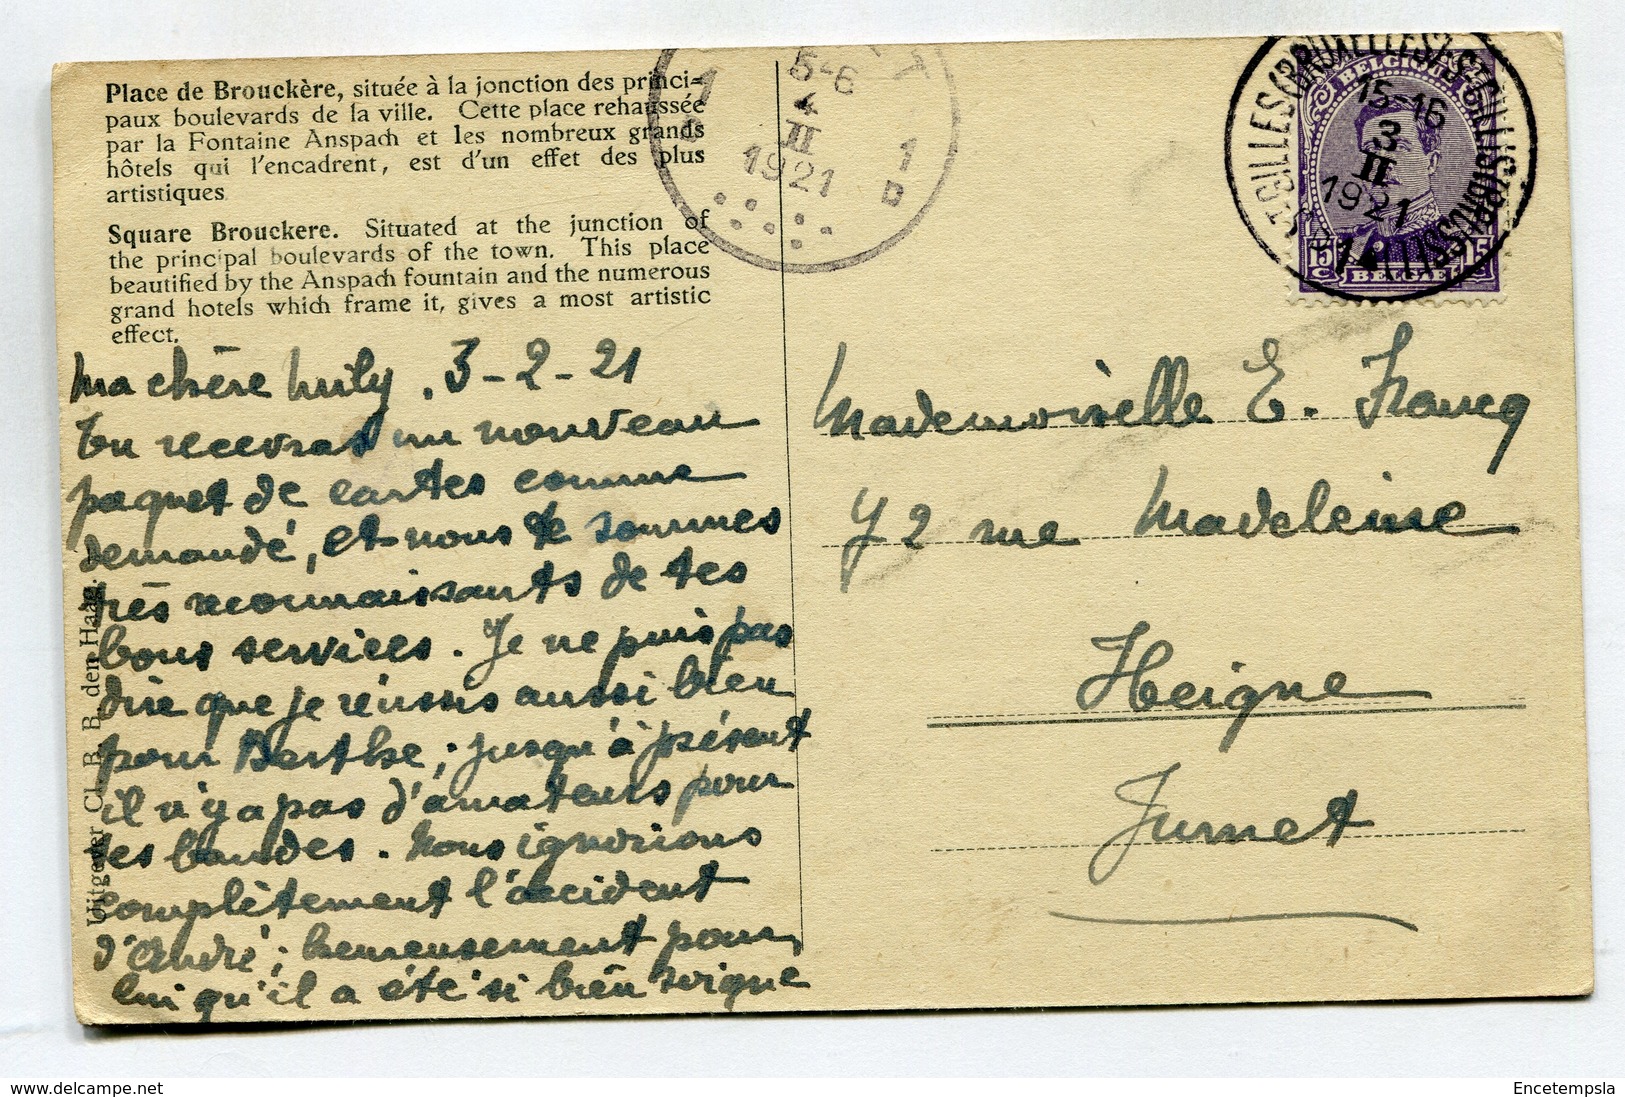 Place de Brouckère, située à la jonction des princi=
paux boulevards de la ville. Cette place rehaussée
par la Fontaine Anspach et les nombreux grands
hôtels qui l'encadrent, est d'un effet des plus
artistiques.
Square Brouckere. Situated at the junction of
the principal boulevards of the town. This place
beautified by the Anspach fountain and the numerous
grand hotels which frame it, gives a most artistic
effect.
Ma chère Mily. 3-2-21
Tu recevras un nouveau
paquet de cartes comme
demandé, et nous te sommes
très reconnaissants de tes
bons services. Je ne puis pas
dire que je réussis aussi bien
pour Berthe; jusqu'à présent
il n'y a pas d'amateurs pour
ses bandes. Nous ignorions
complètement l'accident
d'André; heureusement pour
lui qu'il a été si bien soigné
Uitgever Cl. B. B. den Haag.
1 1
B B
5-6
4
II
1921
15-16
3
II
1921
BELGIQUE
15 C
BELGIË
15
Mademoiselle E. Francq
72 rue Madeleine
Heigne
Jumet
Encetempsla
www.delcampe.net